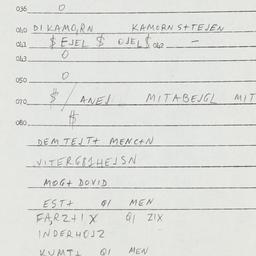 036 0
040 DI KAMO,RN KAMORNS+TEJEN
041 $ EJEL $ OJEL $ 042 –
043 0
050 0
070 $ / ANEJ MITABEJGL MIT
$
080
DEM TEJT+ MENC+N
VITERG81HEJSN
MOG+ DOVID
EST+ QI MEN
FA,RZ+1 X QI ZIX
INDERHOJZ
KUMT+ QI MEN